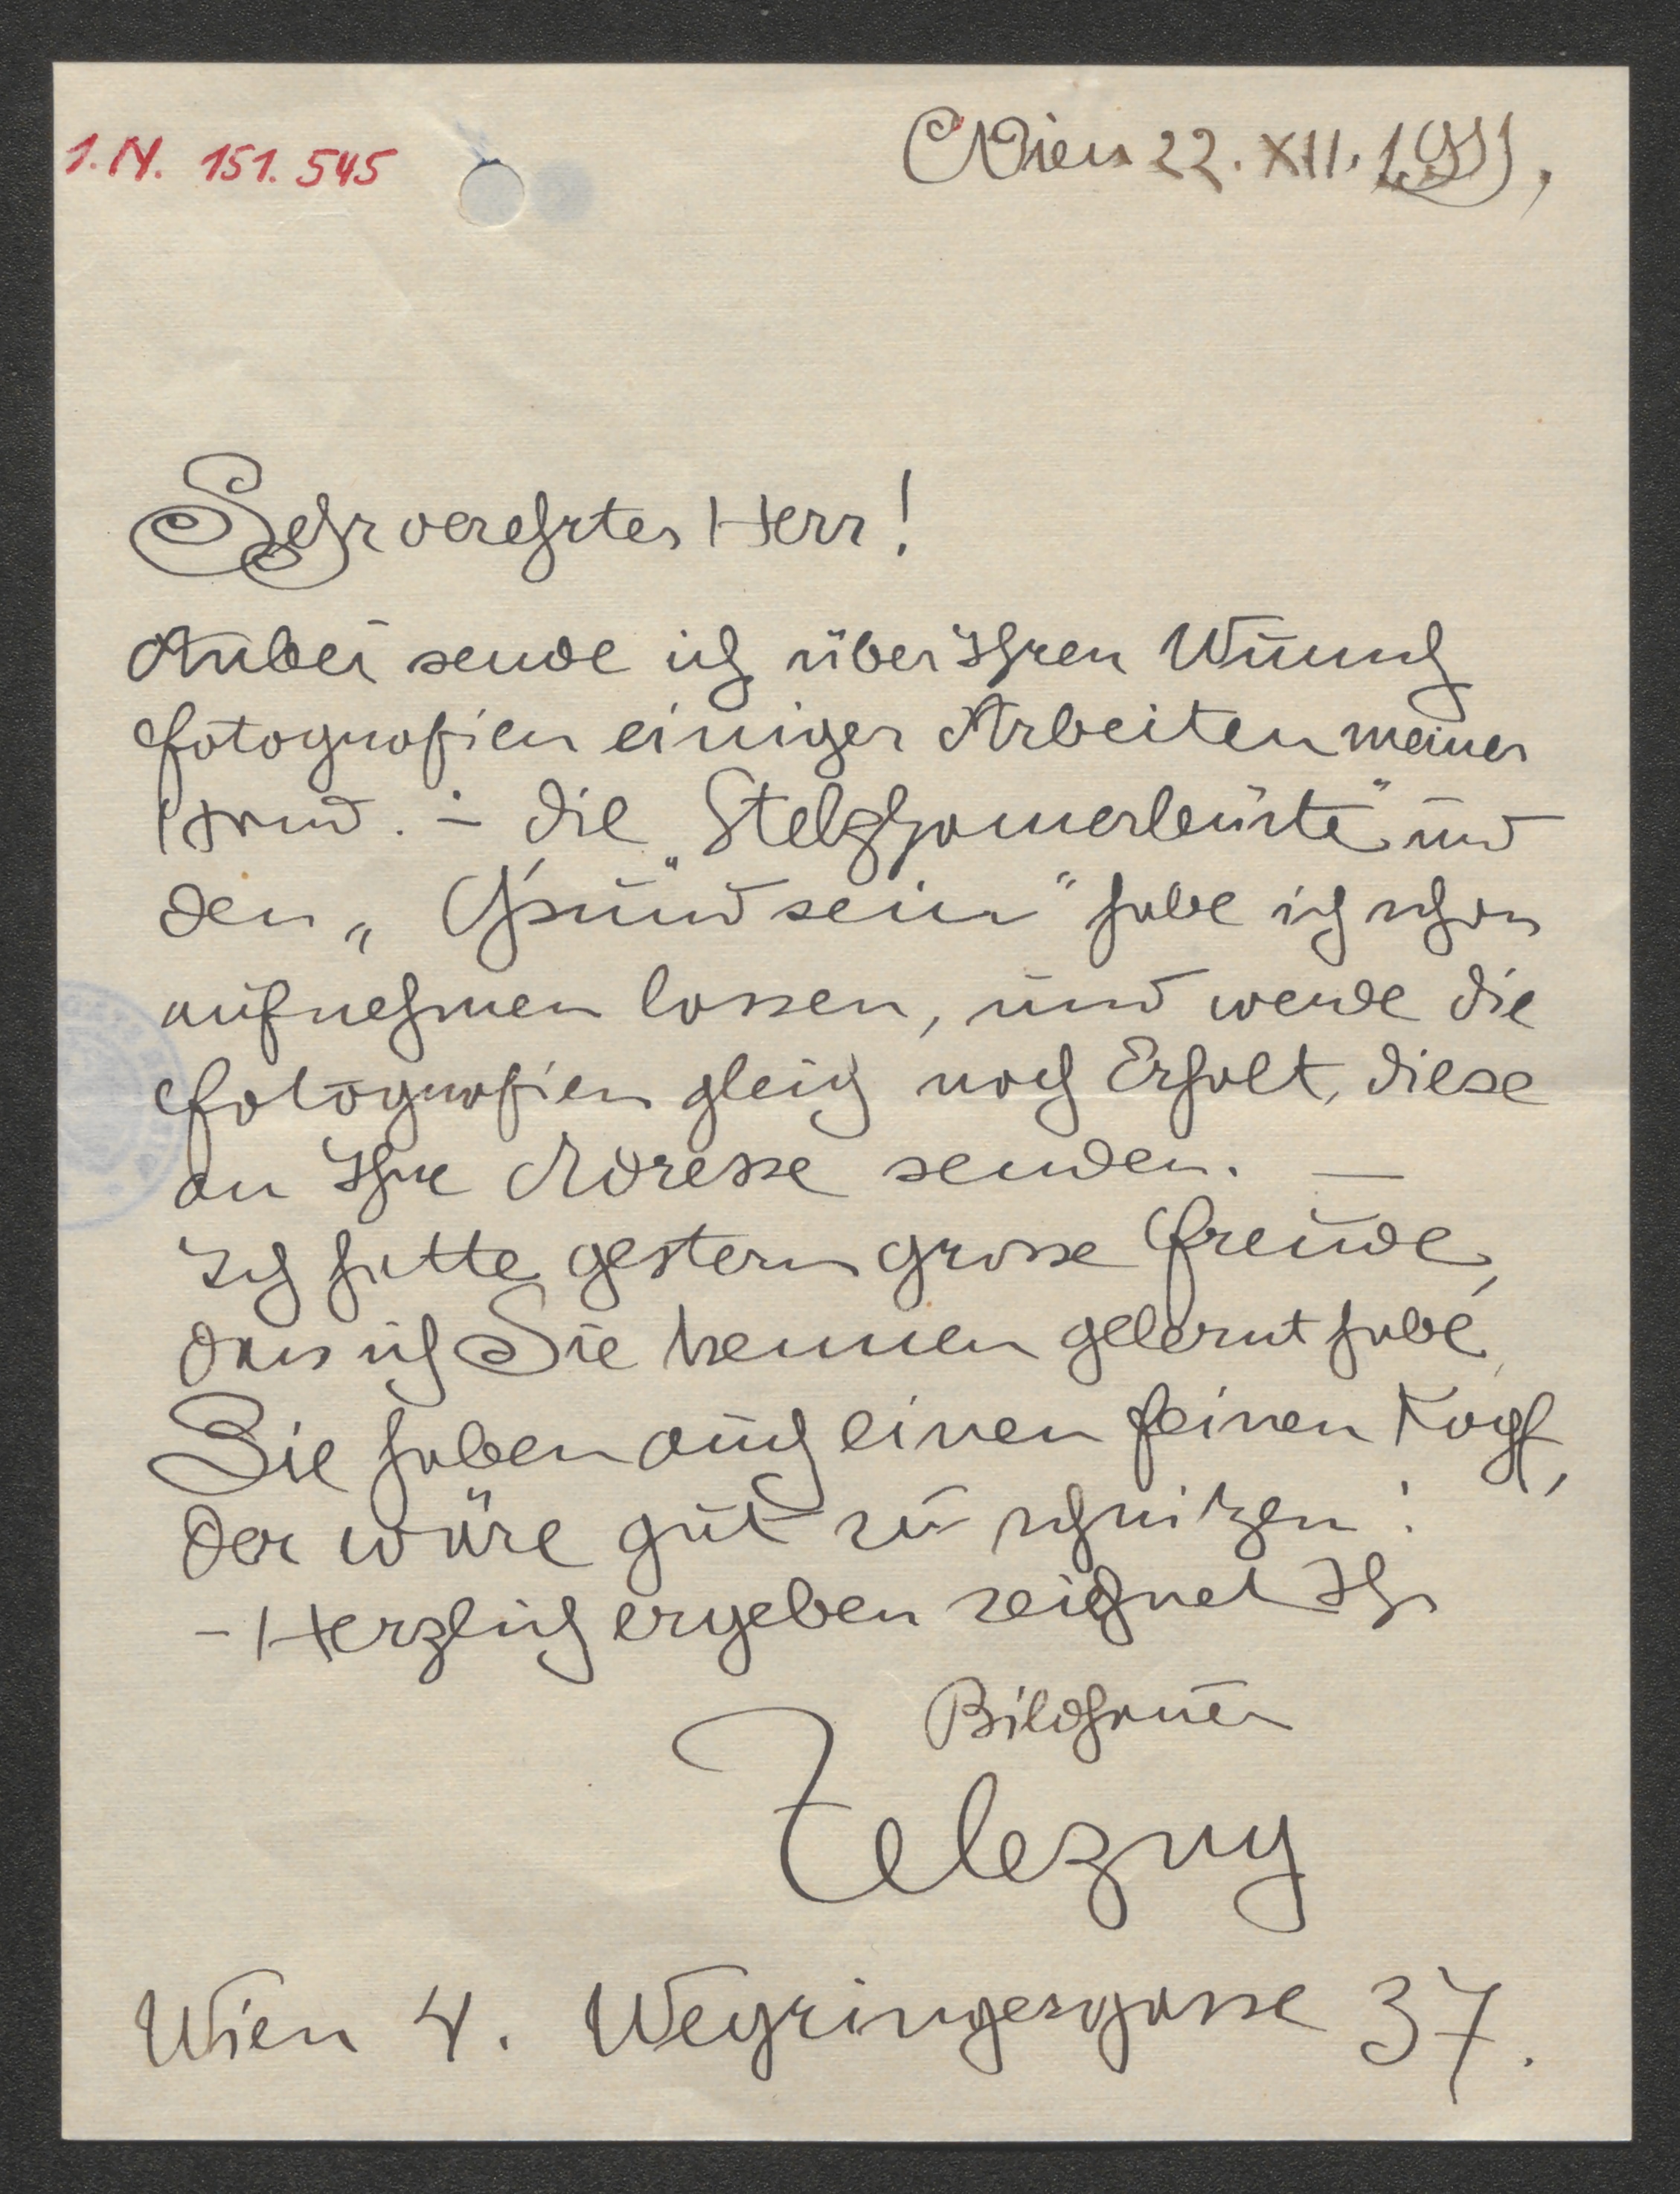 I.N. 151.545
Wien 22. XII. 1911,
Sehr verehrter Herr!
Anbei sende ich über Ihren Wunsch
Fotografien einiger Arbeiten meiner
Hand. – die „Stelzhamerbüste" und
den „Gsund sein" habe ich schon
aufnehmen lassen, und werde die
Fotografien gleich nach Erhalt, diese
an Ihre Adresse senden. —
Ich hatte gestern grosse Freude,
dass ich Sie kennen gelernt habe,
Sie haben auch einen feinen Kopf,
der wäre gut zu schnitzen!
– Herzlich ergeben zeichnet Ihr
Bildhauer
Zelezny
Wien 4. Weyringergasse 37.